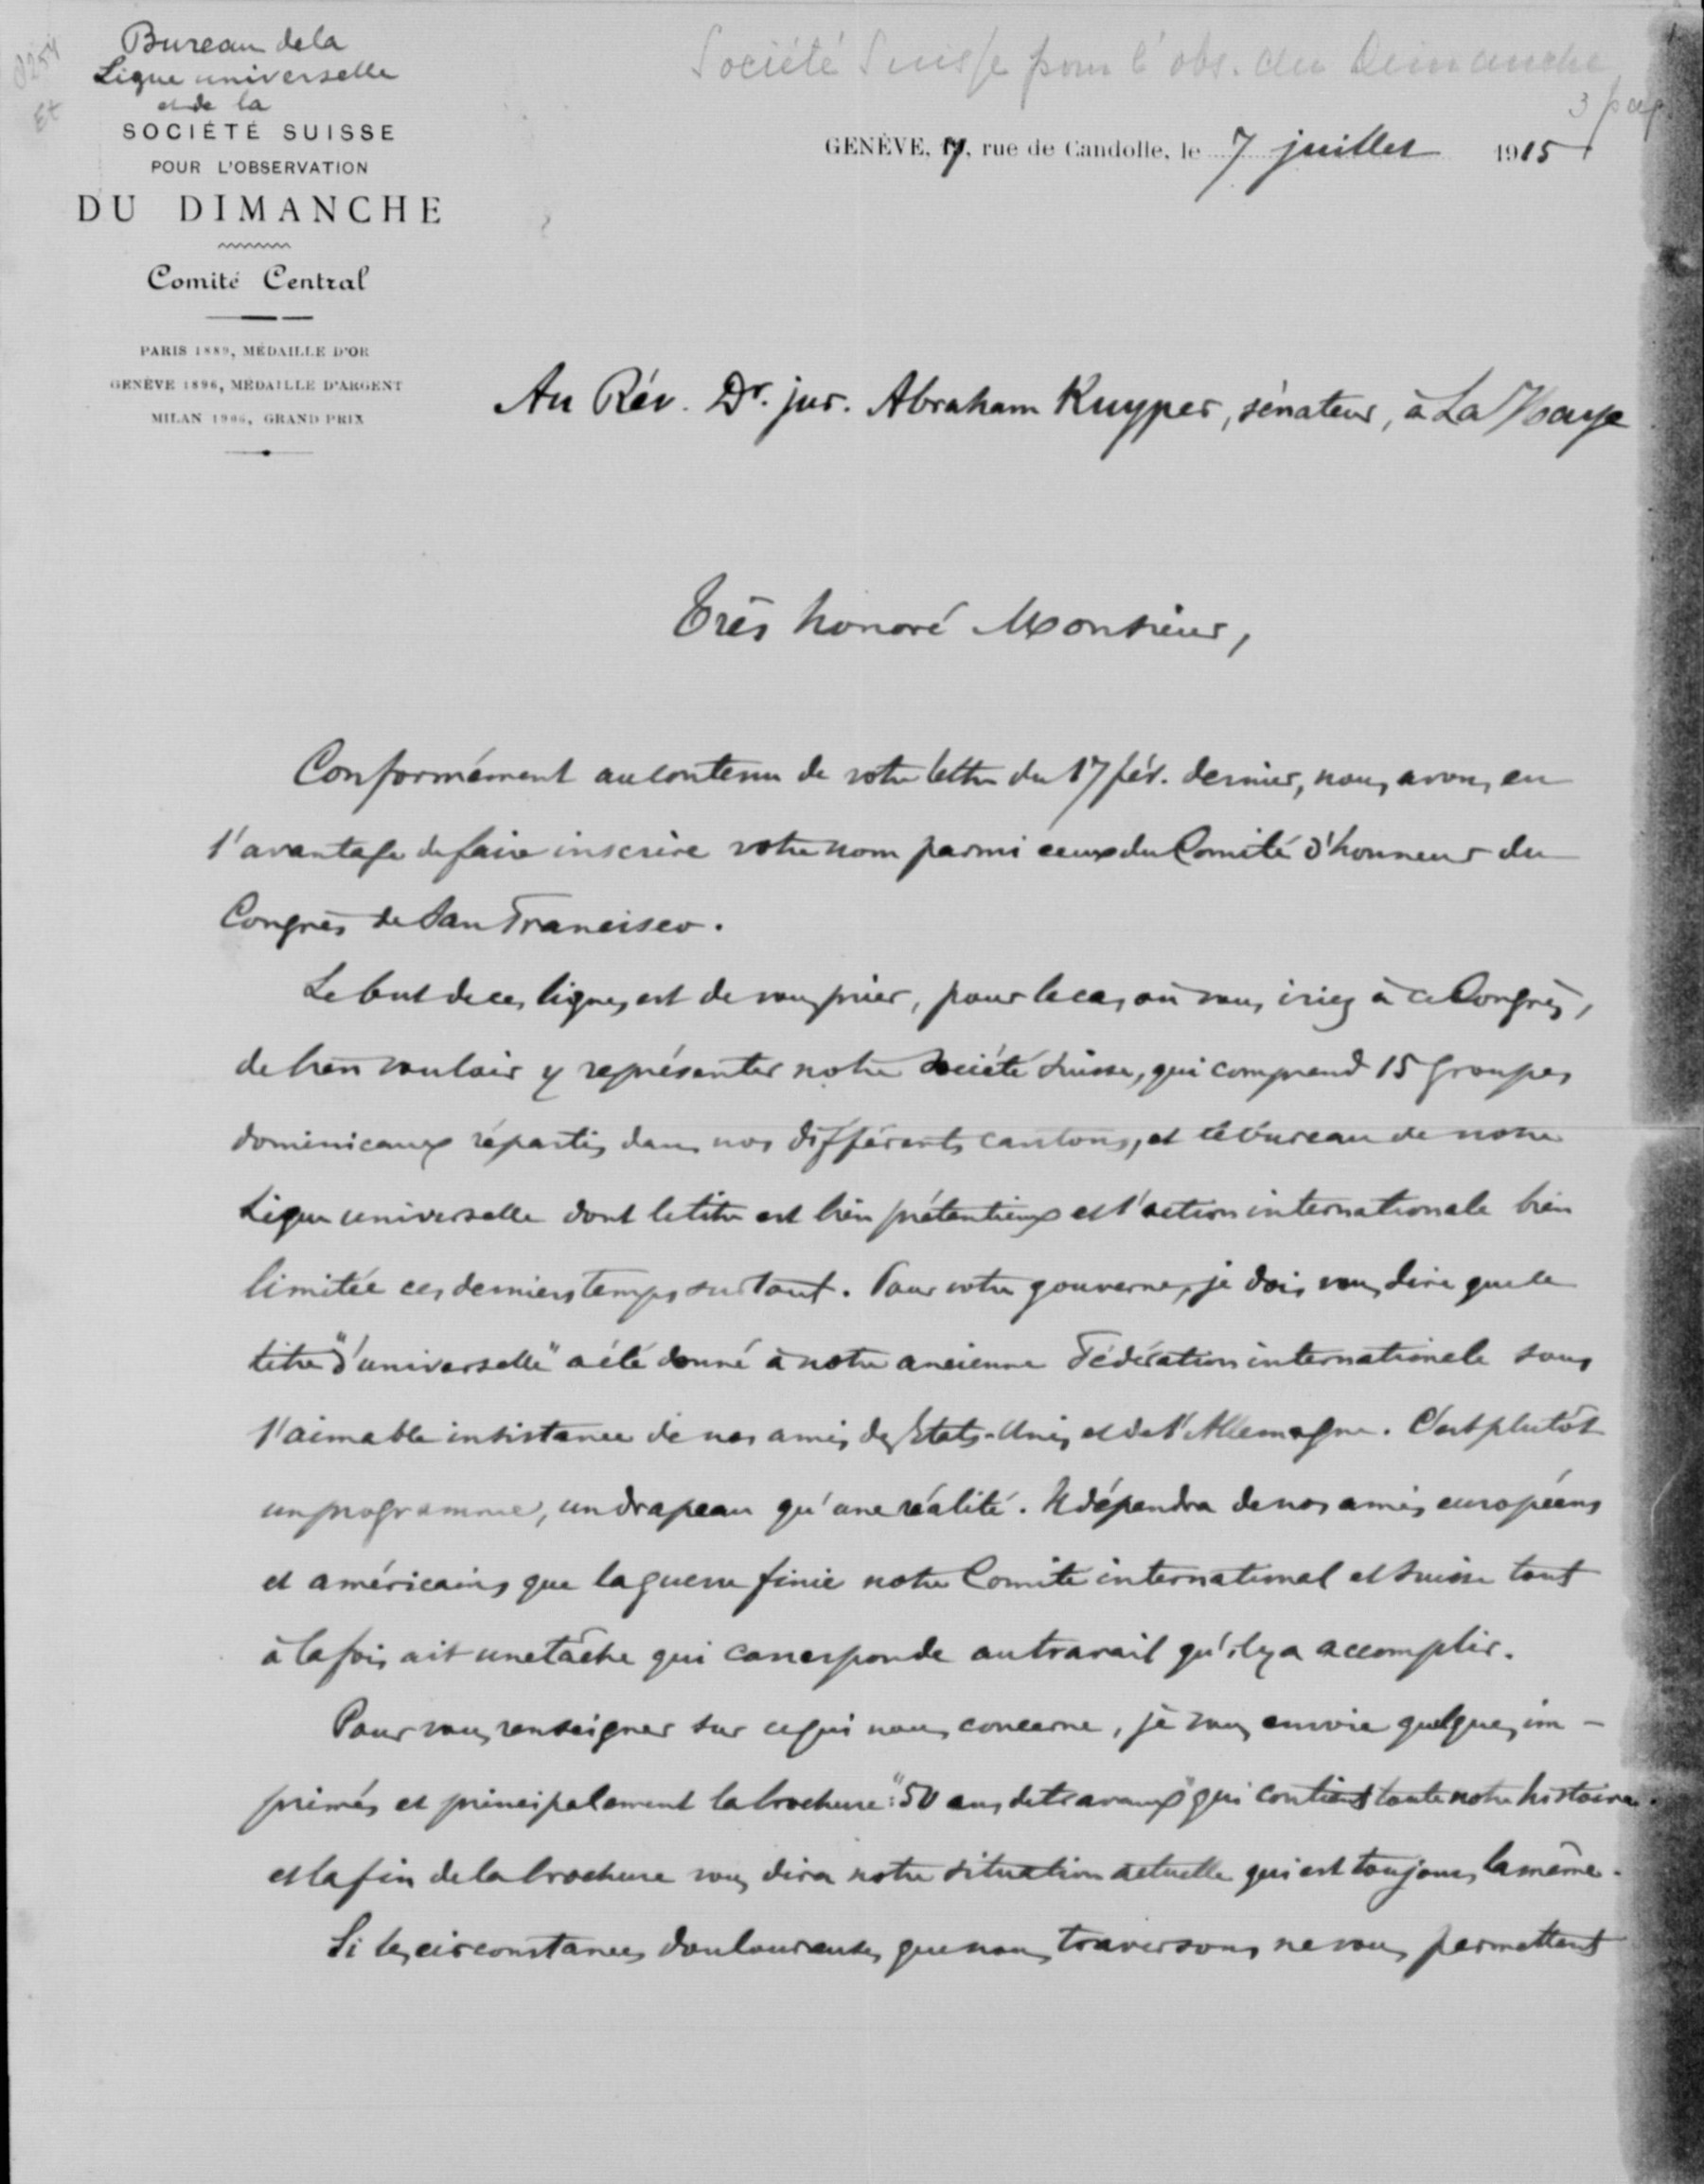 Bureau de la
Ligue universelle
et de la
SOCIÉTÉ SUISSE
POUR L'OBSERVATION
DU DIMANCHE
Comité Central
PARIS 1889, MÉDAILLE D'OR
GENÈVE 1896, MÉDAILLE D'ARGENT
MILAN 1906, GRAND PRIX
Société Suisse pour l'obs. du Dimanche
3 pap.
GENÈVE, 17, rue de Candolle, le 7 juillet 1915
Au Rév. Dr. jur. Abraham Kuyper, sénateur, à La Haye
Très honoré Monsieur,
Conformément au contenu de votre lettre du 17 fév. dernier, nous avons eu
l'avantage de faire inscrire votre nom parmi ceux du Comité d'honneur du
Congrès de San Francisco.
Le but de ces lignes est de vous prier, pour le cas où vous iriez à ce Congrès,
de bien vouloir y représenter notre Société suisse, qui comprend 15 groupes
dominicaux répartis dans nos différents cantons, et le bureau de notre
Ligue universelle dont le titre est bien prétentieux et l'action internationale bien
limitée ces derniers temps surtout. Pour votre gouverne, je dois vous dire que le
titre "d'universelle" a été donné à notre ancienne Fédération internationale sous
l'aimable insistance de nos amis des Etats-Unis et de l'Allemagne. C'est plutôt
un programme, un drapeau qu'une réalité. Il dépendra de nos amis européens
et américains que la guerre finie notre Comité international et suisse tout
à la fois ait une tâche qui corresponde au travail qu'il y a accomplir.
Pour vous renseigner sur ce qui nous concerne, je vous envoie quelques im-
primés et principalement la brochure: "50 ans de travaux" qui contient toute notre histoire.
et la fin de la brochure vous dira notre situation actuelle qui est toujours la même.
Si les circonstances douloureuses que nous traversons ne vous permettent